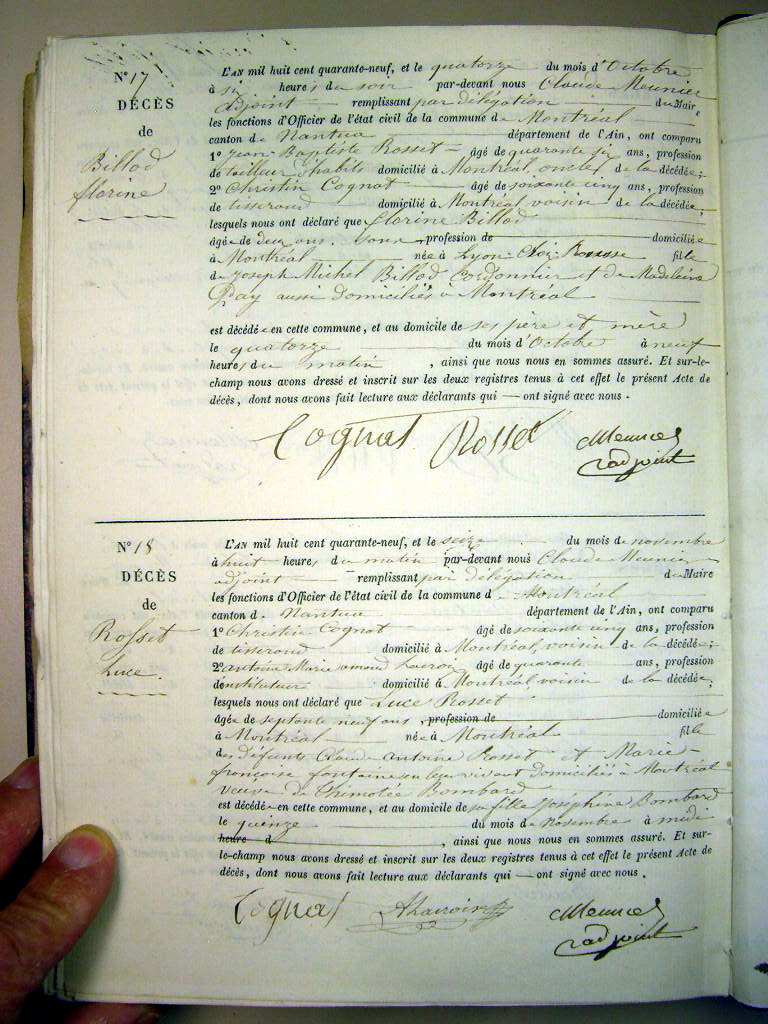 N° 17
DÉCÈS
de
Billod
florine
L'AN mil huit cent quarante-neuf, et le quatorze du mois d'Octobre
à six heures du soir par-devant nous Claude Meunier
adjoint remplissant par délégation du Maire
les fonctions d'Officier de l'état civil de la commune de Montréal
canton de Nantua département de l'Ain, ont comparu
1° Jean Baptiste Rosset âgé de quarante six ans, profession
de tailleur d'habits domicilié à Montréal, oncle de la décédée;
2° Christin Cognat âgé de soixante cinq ans, profession
de tisserand domicilié à Montréal voisin de la décédée,
lesquels nous ont déclaré que florine Billod
âgée de deux ans, sans profession de domiciliée
à Montréal née à Lyon fille
de Joseph Michel Billod Cordonnier et de Madeleine
aussi domiciliés à Montréal
est décédée en cette commune, et au domicile de ses père et mère
le quatorze du mois d'Octobre à neuf
heures du matin, ainsi que nous nous en sommes assuré. Et sur-le-
champ nous avons dressé et inscrit sur les deux registres tenus à cet effet le présent Acte de
décès, dont nous avons fait lecture aux déclarants qui — ont signé avec nous.
Cognat Rosset Meunier
adjoint
N° 18
DÉCÈS
de
Rosset
Luce.
L'AN mil huit cent quarante-neuf, et le seize du mois de novembre
à huit heures du matin par-devant nous Claude Meunier
adjoint remplissant par délégation de Maire
les fonctions d'Officier de l'état civil de la commune de Montréal
canton de Nantua département de l'Ain, ont comparu
1° Christin Cognat âgé de soixante cinq ans, profession
de tisserand domicilié à Montréal, voisin de la décédée;
2° antoine Marie amand âgé de quarante ans, profession
d'instituteur domicilié à Montréal voisin de la décédée;
lesquels nous ont déclaré que Luce Rosset
âgée de septante neuf ans, profession de domiciliée
à Montréal née à Montréal fille
des défunts Claude Antoine Rosset et Marie
françoise fontaine en leur vivant domiciliés à Montréal
veuve de Thimotée Bombard
est décédée en cette commune, et au domicile de sa fille Joséphine Bombard
le quinze du mois de Novembre à midi
heure d , ainsi que nous nous en sommes assuré. Et sur-
le-champ nous avons dressé et inscrit sur les deux registres tenus à cet effet le présent Acte de
décès, dont nous avons fait lecture aux déclarants qui — ont signé avec nous.
Cognat Meunier
adjoint